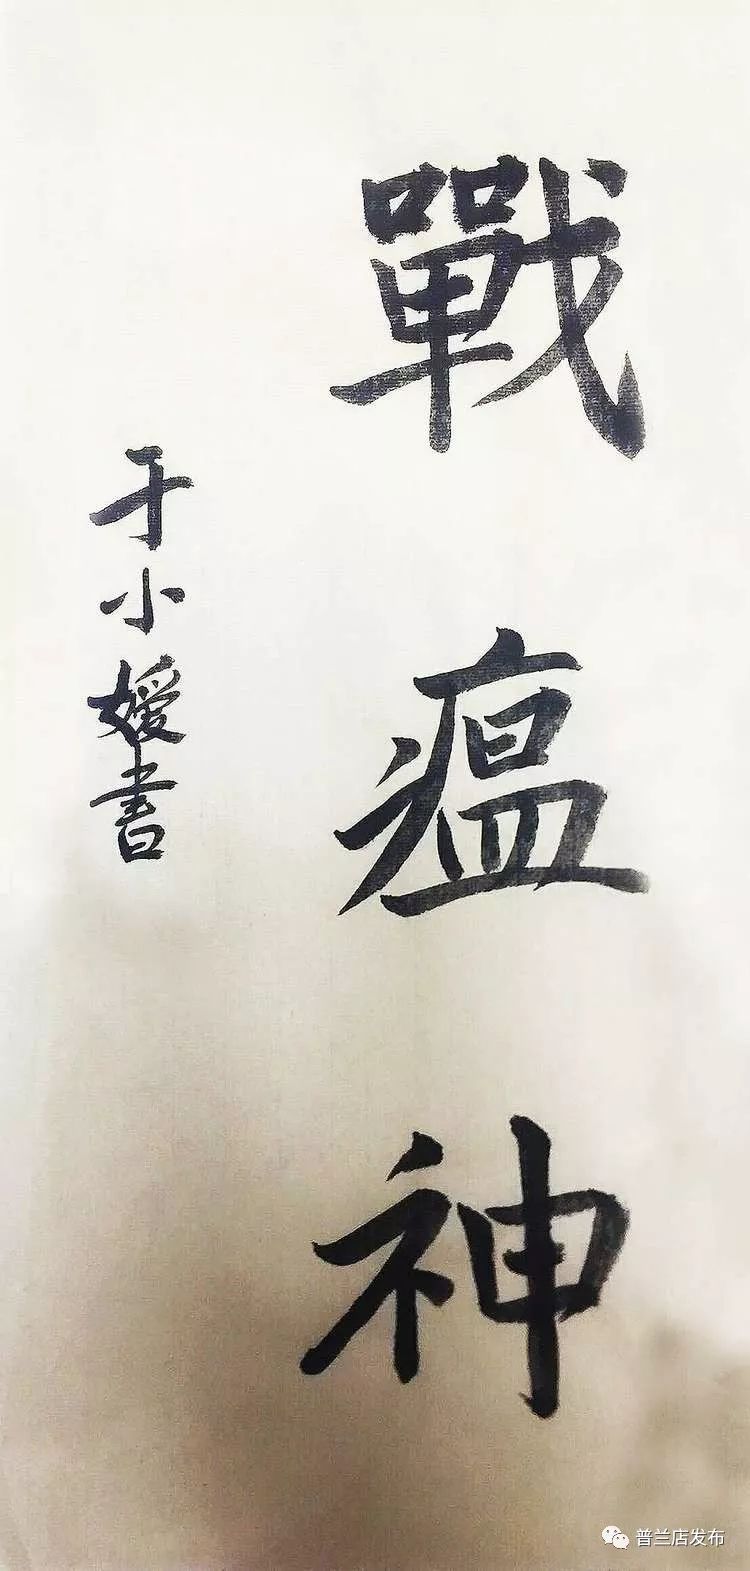 戰瘟神
于小嫒書
普兰店发布